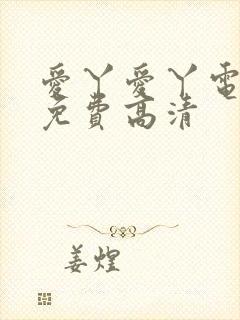 愛丫愛丫電
免費高清
姜煌